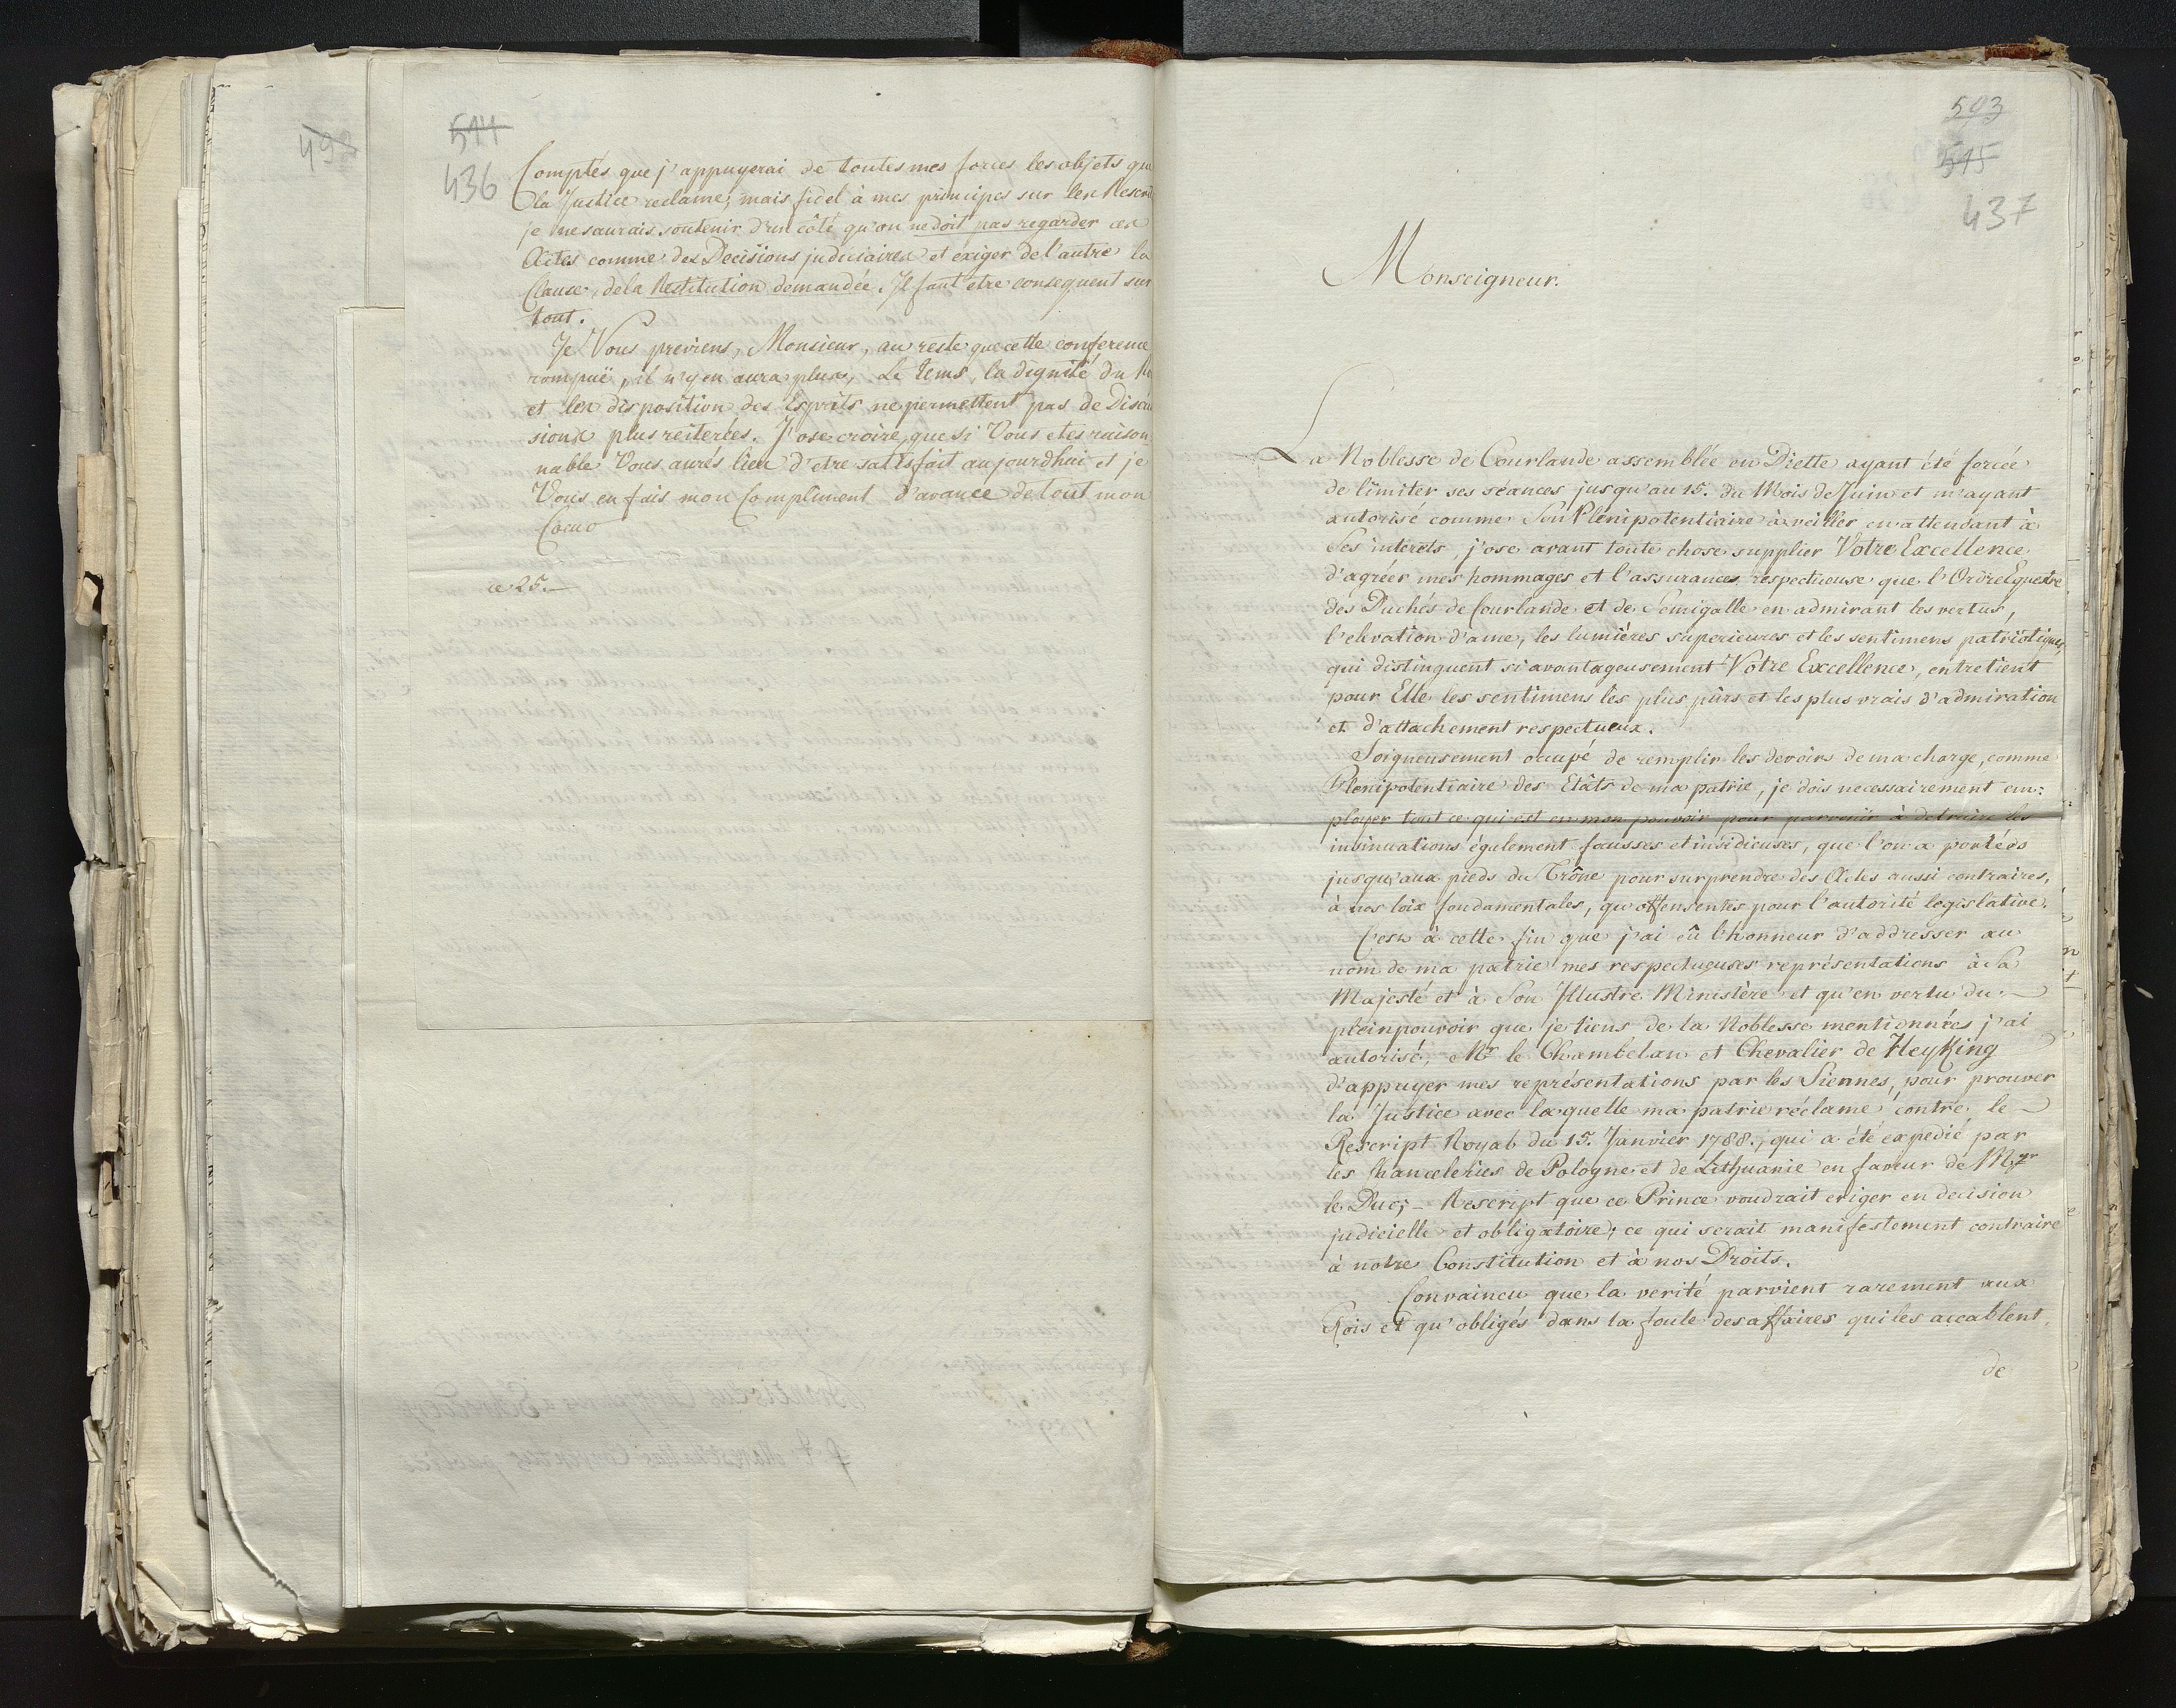 498
514
436
Comptés que j'appuyerai de toutes mes forces les objets que
la Justice reclame; mais fidel à mes principes sur les
je ne saurais soutenir d'un côté qu'on ne doit pas regarder ces
Actes comme des Decisions judiciaires et exiger de l'autre la
Clause, de la Restitution demandée. Il faut etre consequent sur
tout.
Je Vous previens, Monsieur, au reste que cette conference
rompuë, il n'y en aura plus, Le tems, la dignité du
et les disposition des Esprits ne permettent pas de Discu
sions plus reiterées. J'ose croire, que si Vous etes raison
nable Vous aurés lieu d'etre satisfait aujourdhui et je
Vous en fais mon Compliment d'avance de tout mon
Coeur
ce 25.
593
515
437
Monseigneur.
La Noblesse de Courlande assemblée en Diette ayant été forcée
de limiter ses séances jusqu'au 15. du Mois de Juin et m'ayant
autorisé comme Son Plenipotentiaire à veiller en attendant à
Ses interets, j'ose avant toute chose supplier Votre Excellence
d'agréer mes hommages et l'assurances respectueuse que l'Ordre Equestre
des Duchés de Courlande et de Semigalle en admirant les vertus,
l'elevation d'ame, les lumières superieures et les sentimens patriotiques,
qui distinguent si avantageusement Votre Excellence, entretient
pour Elle les sentimens les plus pûrs et les plus vrais d'admiration
et d'attachement respectueux.
Soigneusement occupé de remplir les devoirs de ma charge, comme
Plenipotentiaire des Etâts de ma patrie, je dois necessairement em:
ployer tout ce qui est en mon pouvoir pour parvenir à detruire les
insinuations également fausses et insidieuses, que l'on a portéés
jusqu'aux pieds du Trône pour surprendre des Actes aussi contraires,
à nos loix fondamentales, qu'offensentes pour l'autorité legislative.
C'est à cette fin que j'ai eû l'honneur d'addresser au
nom de ma patrie mes respectueuses représentations à Sa
Majesté et à Son Illustre Ministère et qu'en vertu du
pleinpouvoir que je tiens de la Noblesse mentionnées j'ai
autorisé, Mr le Chambelan et Chevalier de HeyKing
d'appuyer mes représentations par les Siennes, pour prouver
la Justice avec laquelle ma patrie réclame contre le
Rescript Royal du 15. Janvier 1788., qui a été expedié par
les Chanceleries de Pologne et de Lithuanie en faveur de Mgr
le Duc; - Rescript que ce Prince voudrait eriger en decision
judicielle et obligatoire; ce qui serait manifestement contraire
à notre Constitution et à nos Droits.
Convaincu que la verité parvient rarement aux
Rois et qu'obligés dans la foule des affaires qui les accablent
de